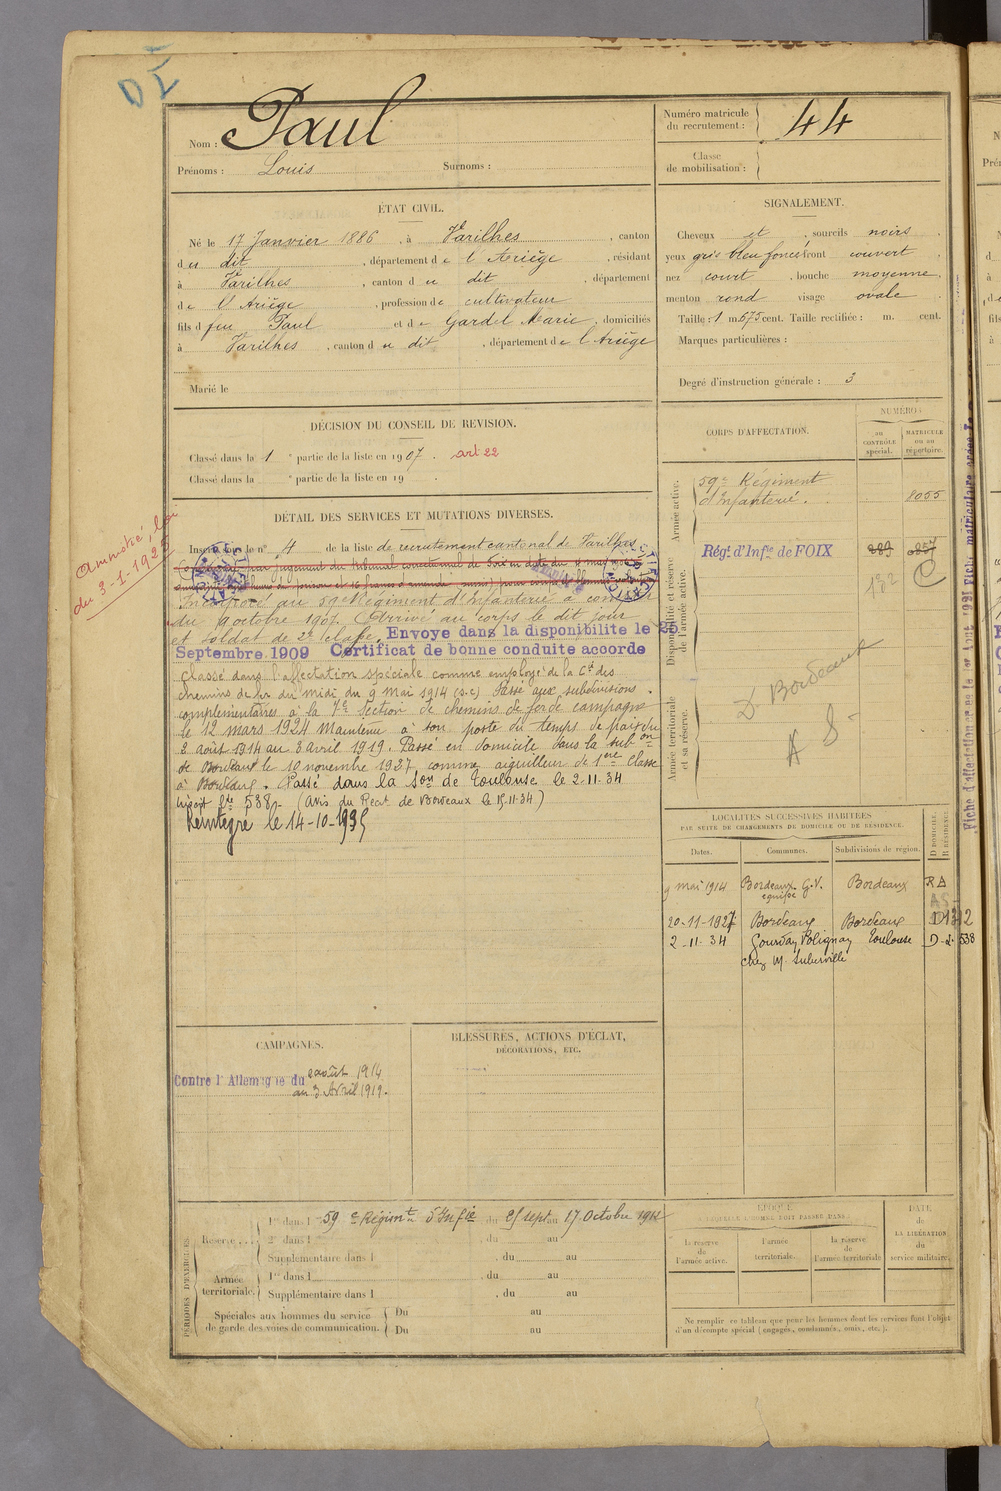 Nom : Paul
Prénoms : Louis Surnoms :
Numéro matricule du recrutement : 44
Classe de mobilisation :
ÉTAT CIVIL.
Né le 17 Janvier 1886, à Varilhes, canton
du dit, département de l'Ariège, résidant
à Varilhes, canton du dit, département
de l'Ariège, profession de cultivateur
fils d feu Paul et de Gardel Marie, domiciliés
à Varilhes, canton du dit, département de l'Ariège
Marié le
SIGNALEMENT.
Cheveux et, sourcils noirs
yeux gris bleu foncé front couvert
nez court, bouche moyenne,
menton rond visage ovale
Taille : 1 m. 675 cent. Taille rectifiée : m. cent.
Marques particulières :
Degré d'instruction générale : 3
DÉCISION DU CONSEIL DE REVISION.
Classé dans la 1e partie de la liste en 1907. art 22
Classé dans la e partie de la liste en 19 .
DÉTAIL DES SERVICES ET MUTATIONS DIVERSES.
Amnistié, loi
du 3-1-1925
Inscrit sous le n° 4 de la liste de recrutement cantonal de Varilhes
Incorporé au 59e Régiment d'Infanterie à compter
du octobre 1907. Arrivé au corps le dit jour
et soldat de 2e classe. Envoye dans la disponibilite le 25
Septembre 1909 Certificat de bonne conduite accorde
Classé dans l'affectation spéciale comme employé de la Cie des
chemins de fer du midi du 9 mai 1914 (s.c) Passé aux subdivisions
complémentaires à la 7e Section de chemins de fer de campagne
le 12 mars 1924 Maintenu à son poste du temps de paix du
2 août 1914 au 3 avril 1919. Passé en domicile dans la subon
de Bordeaux le 10 novembre 1927 comme aiguilleur de 1ère classe
à Bordeaux. Passé dans la Son de Toulouse le 2-11-34
538 (Avis du Rect. de Bordeaux le 15-11-34)
Réintégré le 14-10-1935
CORPS D'AFFECTATION.
NUMÉROS
au CONTRÔLE spécial.
MATRICULE ou au répertoire.
Armée active.
59e Régiment
d'Infanterie. 8055
Disponibilité et réserve de l'armée active.
Régt d'Infie de FOIX 289 857
132 C
Armée territoriale et sa réserve.
D. Bordeaux
A S
LOCALITÉS SUCCESSIVES HABITÉES
PAR SUITE DE CHANGEMENTS DE DOMICILE OU DE RÉSIDENCE.
Dates. Communes. Subdivisions de région. D DOMICILE. R RÉSIDENCE.
9 mai 1914 Bordeaux G.V. Bordeaux R
équipe
20-11-1927 Bordeaux Bordeaux D 1312
2-11-34 Gourdan Polignan Toulouse D.2.538
chez M. Suberville
CAMPAGNES.
Contre l'Allemagne du 2 août 1914
au 3 Avril 1919.
BLESSURES, ACTIONS D'ÉCLAT,
DÉCORATIONS, ETC.
PÉRIODES D'EXERCICES.
Réserve . . .
1re dans l 59e Régimt d'Infie du 25 sept au 17 Octobre 1912
2e dans l , du au
Supplémentaire dans l , du au
Armée territoriale.
1re dans l , du au
Supplémentaire dans l , du au
Spéciales aux hommes du service de garde des voies de communication.
Du au
Du au
ÉPOQUE
À LAQUELLE L'HOMME DOIT PASSER DANS :
la réserve de l'armée active.
l'armée territoriale.
la réserve de l'armée territoriale
DATE de LA LIBÉRATION du service militaire.
Ne remplir ce tableau que pour les hommes dont les services font l'objet
d'un décompte spécial (engagés, condamnés, omis, etc.).